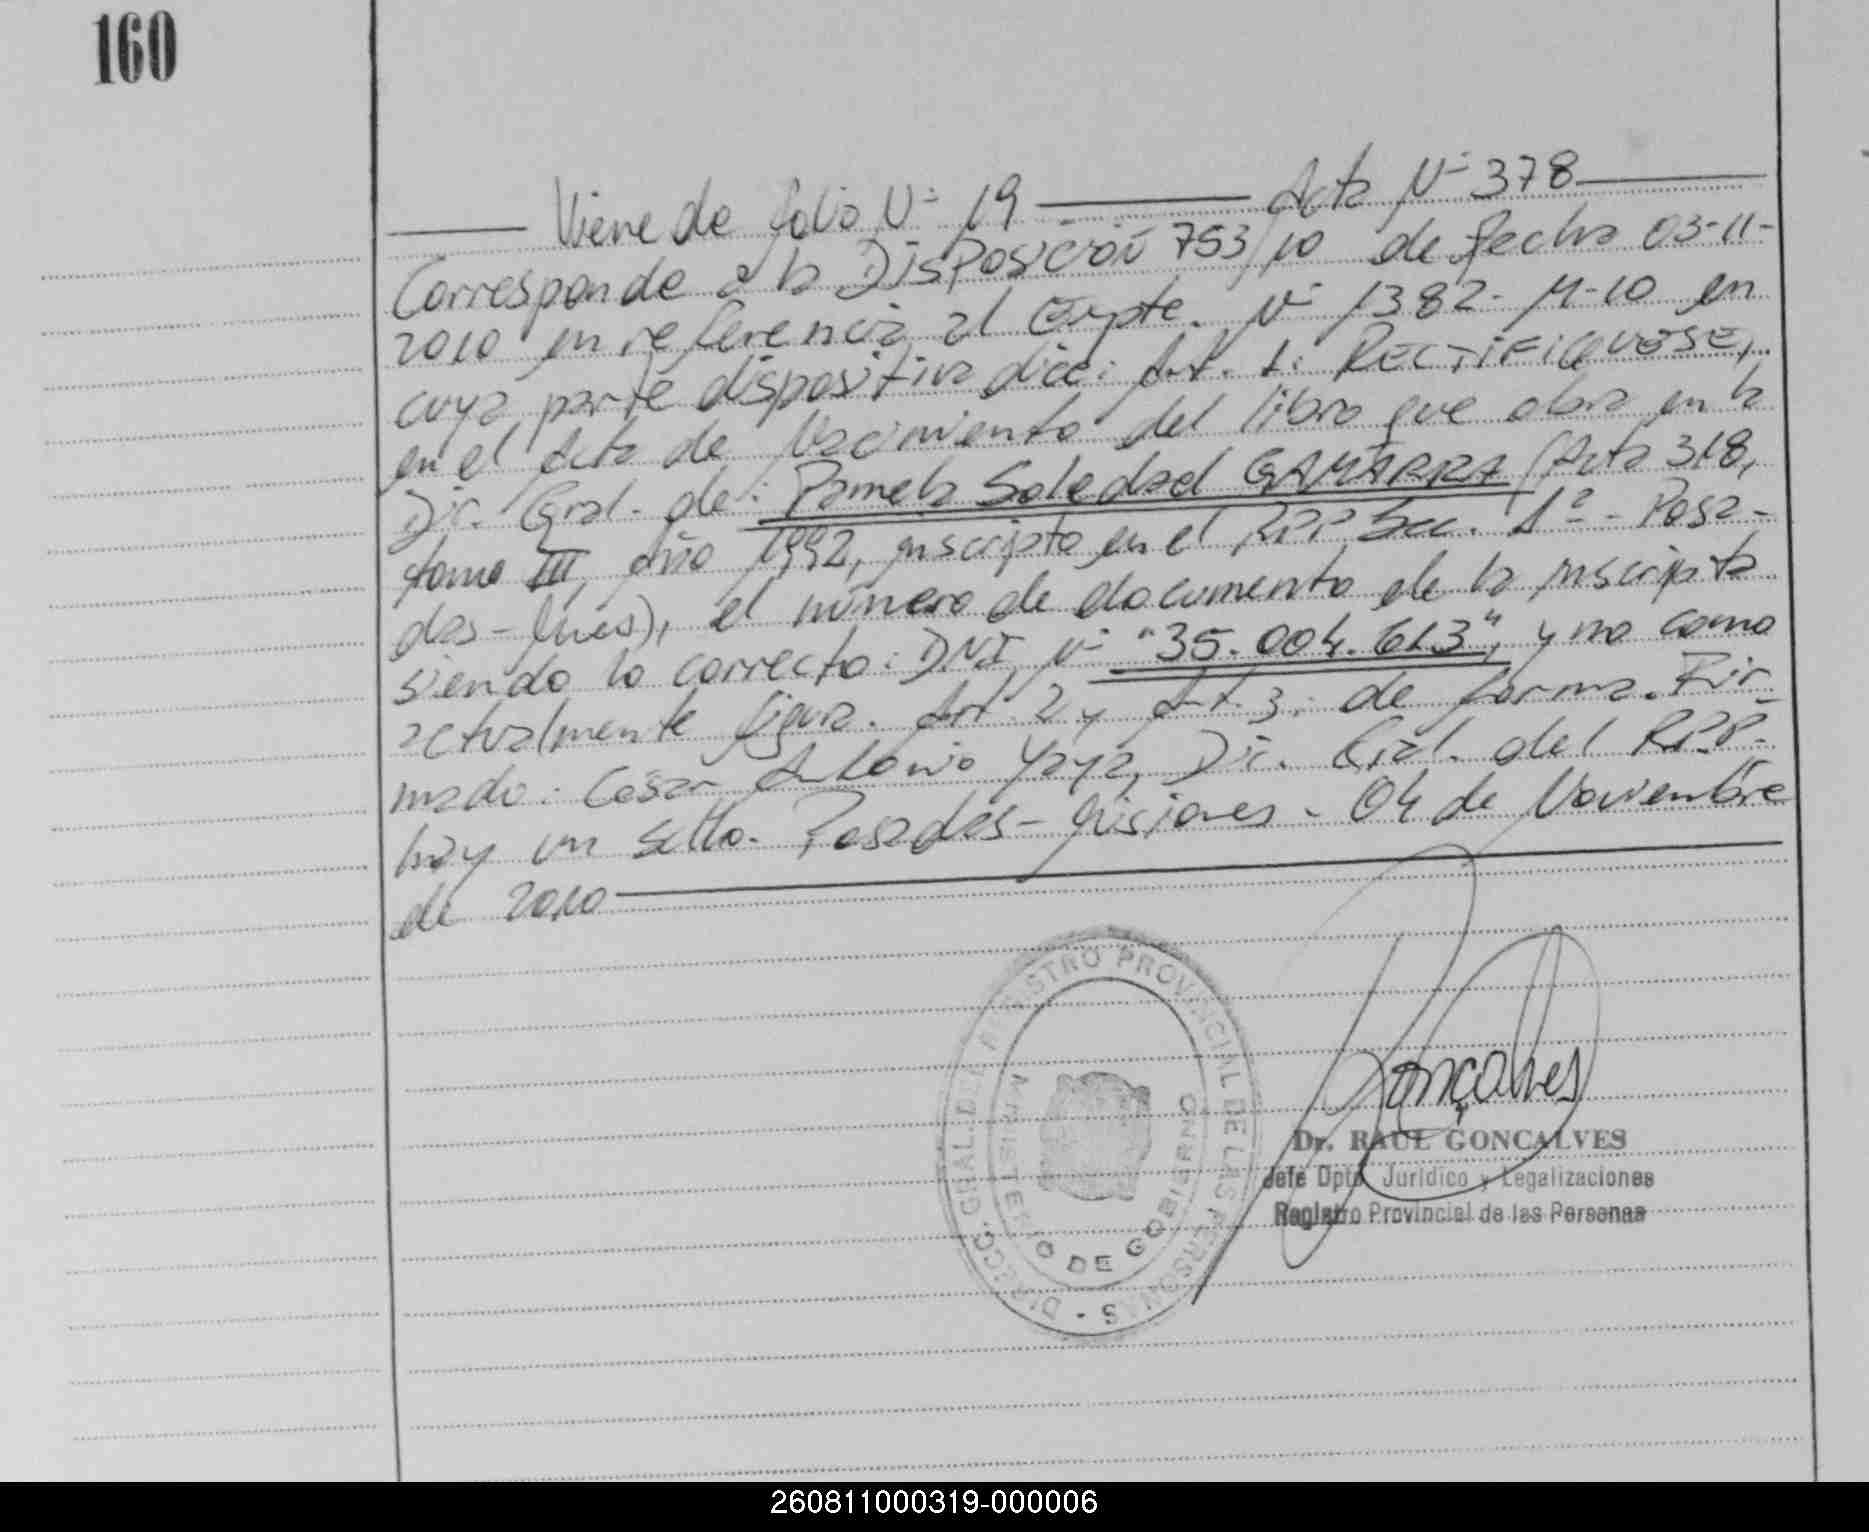 160
Viene de folio Nº 19 Acta Nº 378
Corresponde a la DISPOSICIÓN 753/10 de fecha 03-11-
2010 en referencia al Expte. Nº 1382-M-10 en
cuya parte dispositiva dice: Art. 1: RECTIFIQUESE,
en el Acta de Nacimiento del libro que obra en la
Dir. Gral. de: Pamela Soledad GAMARRA (Acta 318,
tomo III, Año 1992, inscripta en el RPP Sec. 1ª - Posa-
das - Mnes), el número de documento de la inscripta
siendo lo correcto: DNI Nº "35.004.613", y no como
actualmente figura. Art. 2 y Art. 3: de forma. Fir-
mado: César Antonio Yaya, Dir. Gral. del R.P.P.
hay un sello. Posadas - Misiones - 04 de Noviembre
de 2010
DIRECC. GRAL. DEL REGISTRO PROVINCIAL DE LAS PERSONAS -
MINISTERIO DE GOBIERNO
Gonçalves
Dr. RAUL GONCALVES
Jefe Dpto. Jurídico y Legalizaciones
Registro Provincial de las Personas
260811000319-000006